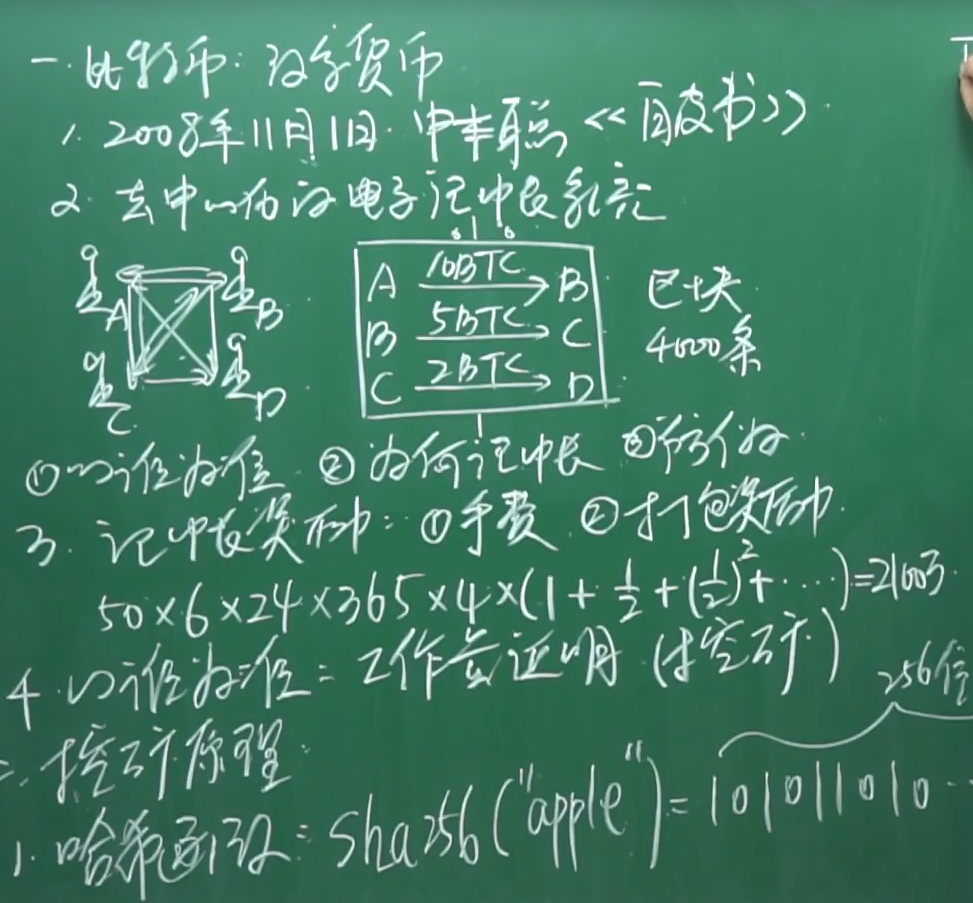 一. 比特币: 数字货币
1. 2008年11月1日. 中本聪 《白皮书》
2. 去中心化的电子记帐系统
A B C D
A 10BTC B
B 5BTC C
C 2BTC D
区块
4000条
①以谁为准 ②为何记帐 ③防伪
3. 记帐奖励: ①手费 ②打包奖励
50×6×24×365×4×(1+1/2+(1/2)²+……)=2100万
4. 以谁为准: 工作量证明 (挖矿)
二. 挖矿原理:
256位
1. 哈希函数: sha256("apple")=101011010…